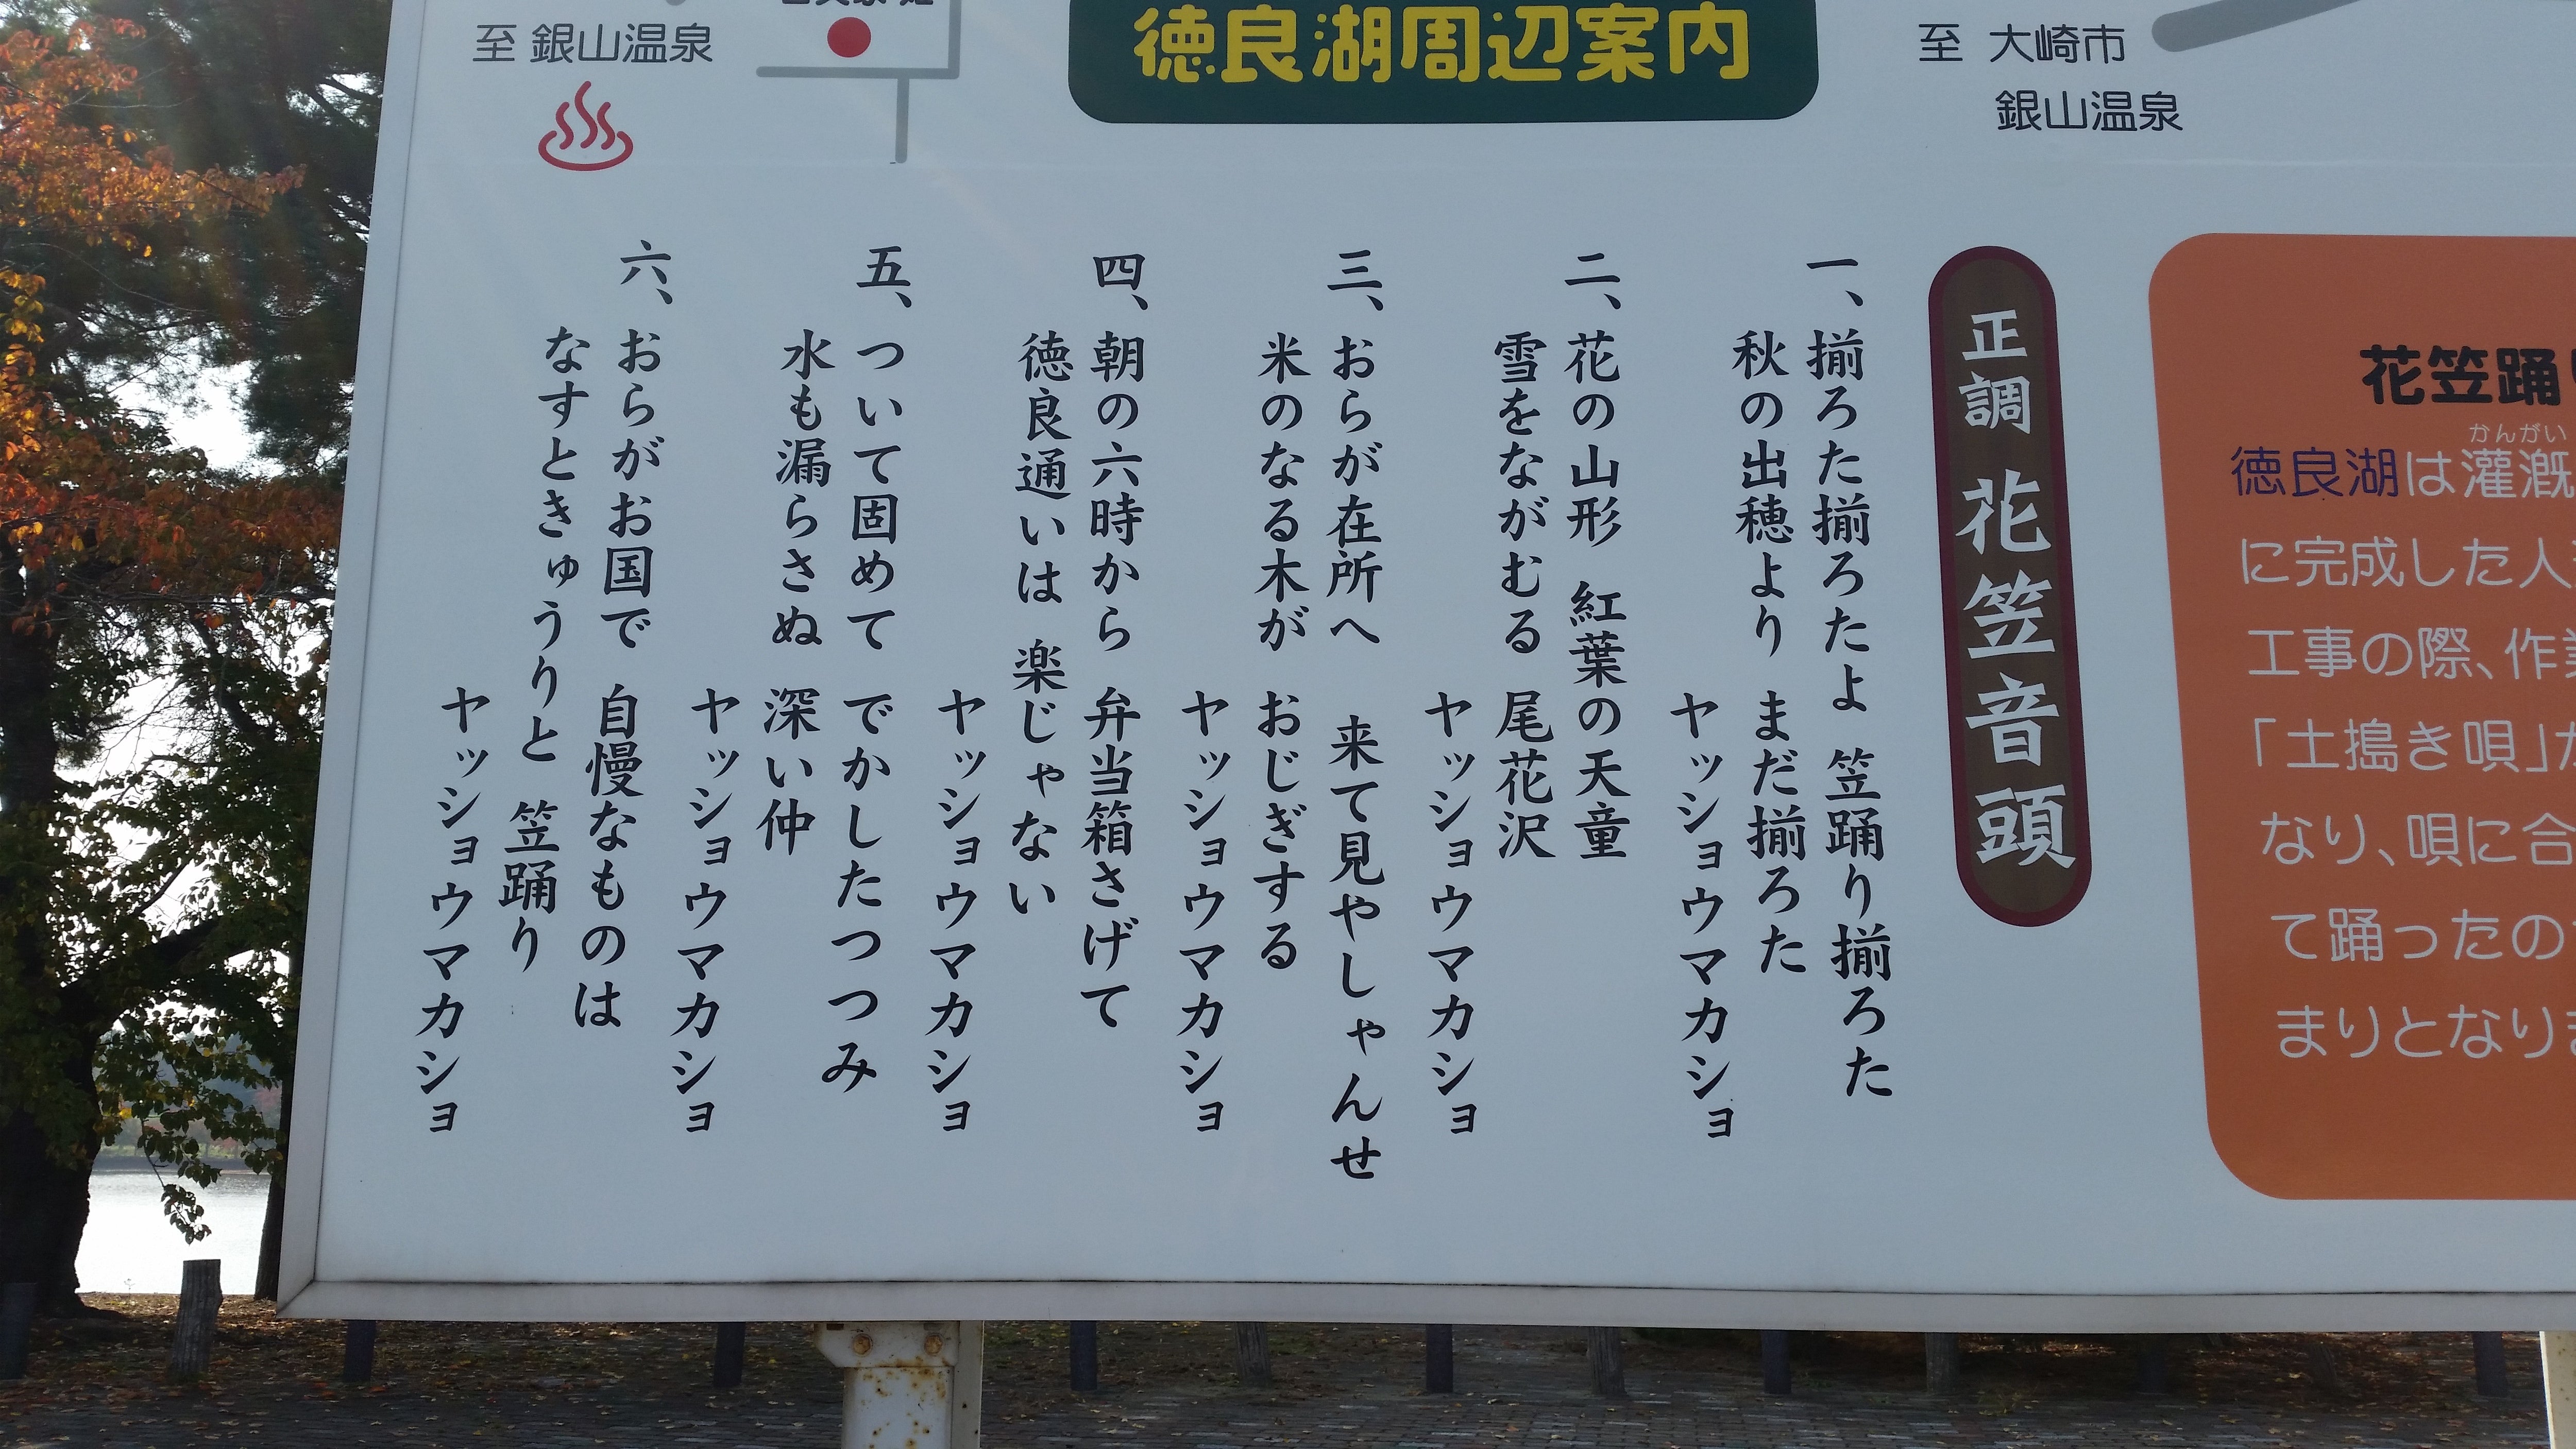 至 銀山温泉
徳良湖周辺案内
至 大崎市
銀山温泉
花笠踊り
かんがい
徳良湖は灌漑
に完成した人
工事の際、作
「土搗き唄」
なり、唄に合
て踊ったの
まりとなり
正調 花笠音頭
一、揃ろた揃ろたよ 笠踊り揃ろた
秋の出穂より まだ揃ろた
ヤッショウマカショ
二、花の山形 紅葉の天童
雪をながむる 尾花沢
ヤッショウマカショ
三、おらが在所へ 来て見やしゃんせ
米のなる木が おじぎする
ヤッショウマカショ
四、朝の六時から 弁当箱さげて
徳良通いは 楽じゃない
ヤッショウマカショ
五、ついて固めて でかしたつつみ
水も漏らさぬ 深い仲
ヤッショウマカショ
六、おらがお国で 自慢なものは
なすときゅうりと 笠踊り
ヤッショウマカショ